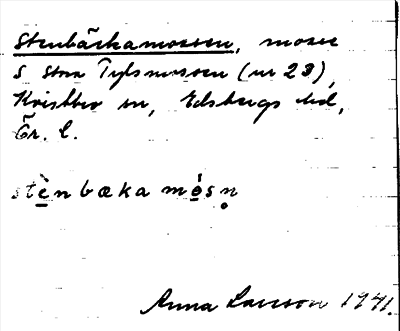 Stenbäckamossen, mosse
S stora Tylsmossen (nr 23),
Kvistbro sn, Edsbergs hd,
Ör. l.
stènbæka mósn̥
Anna Larsson 1941.